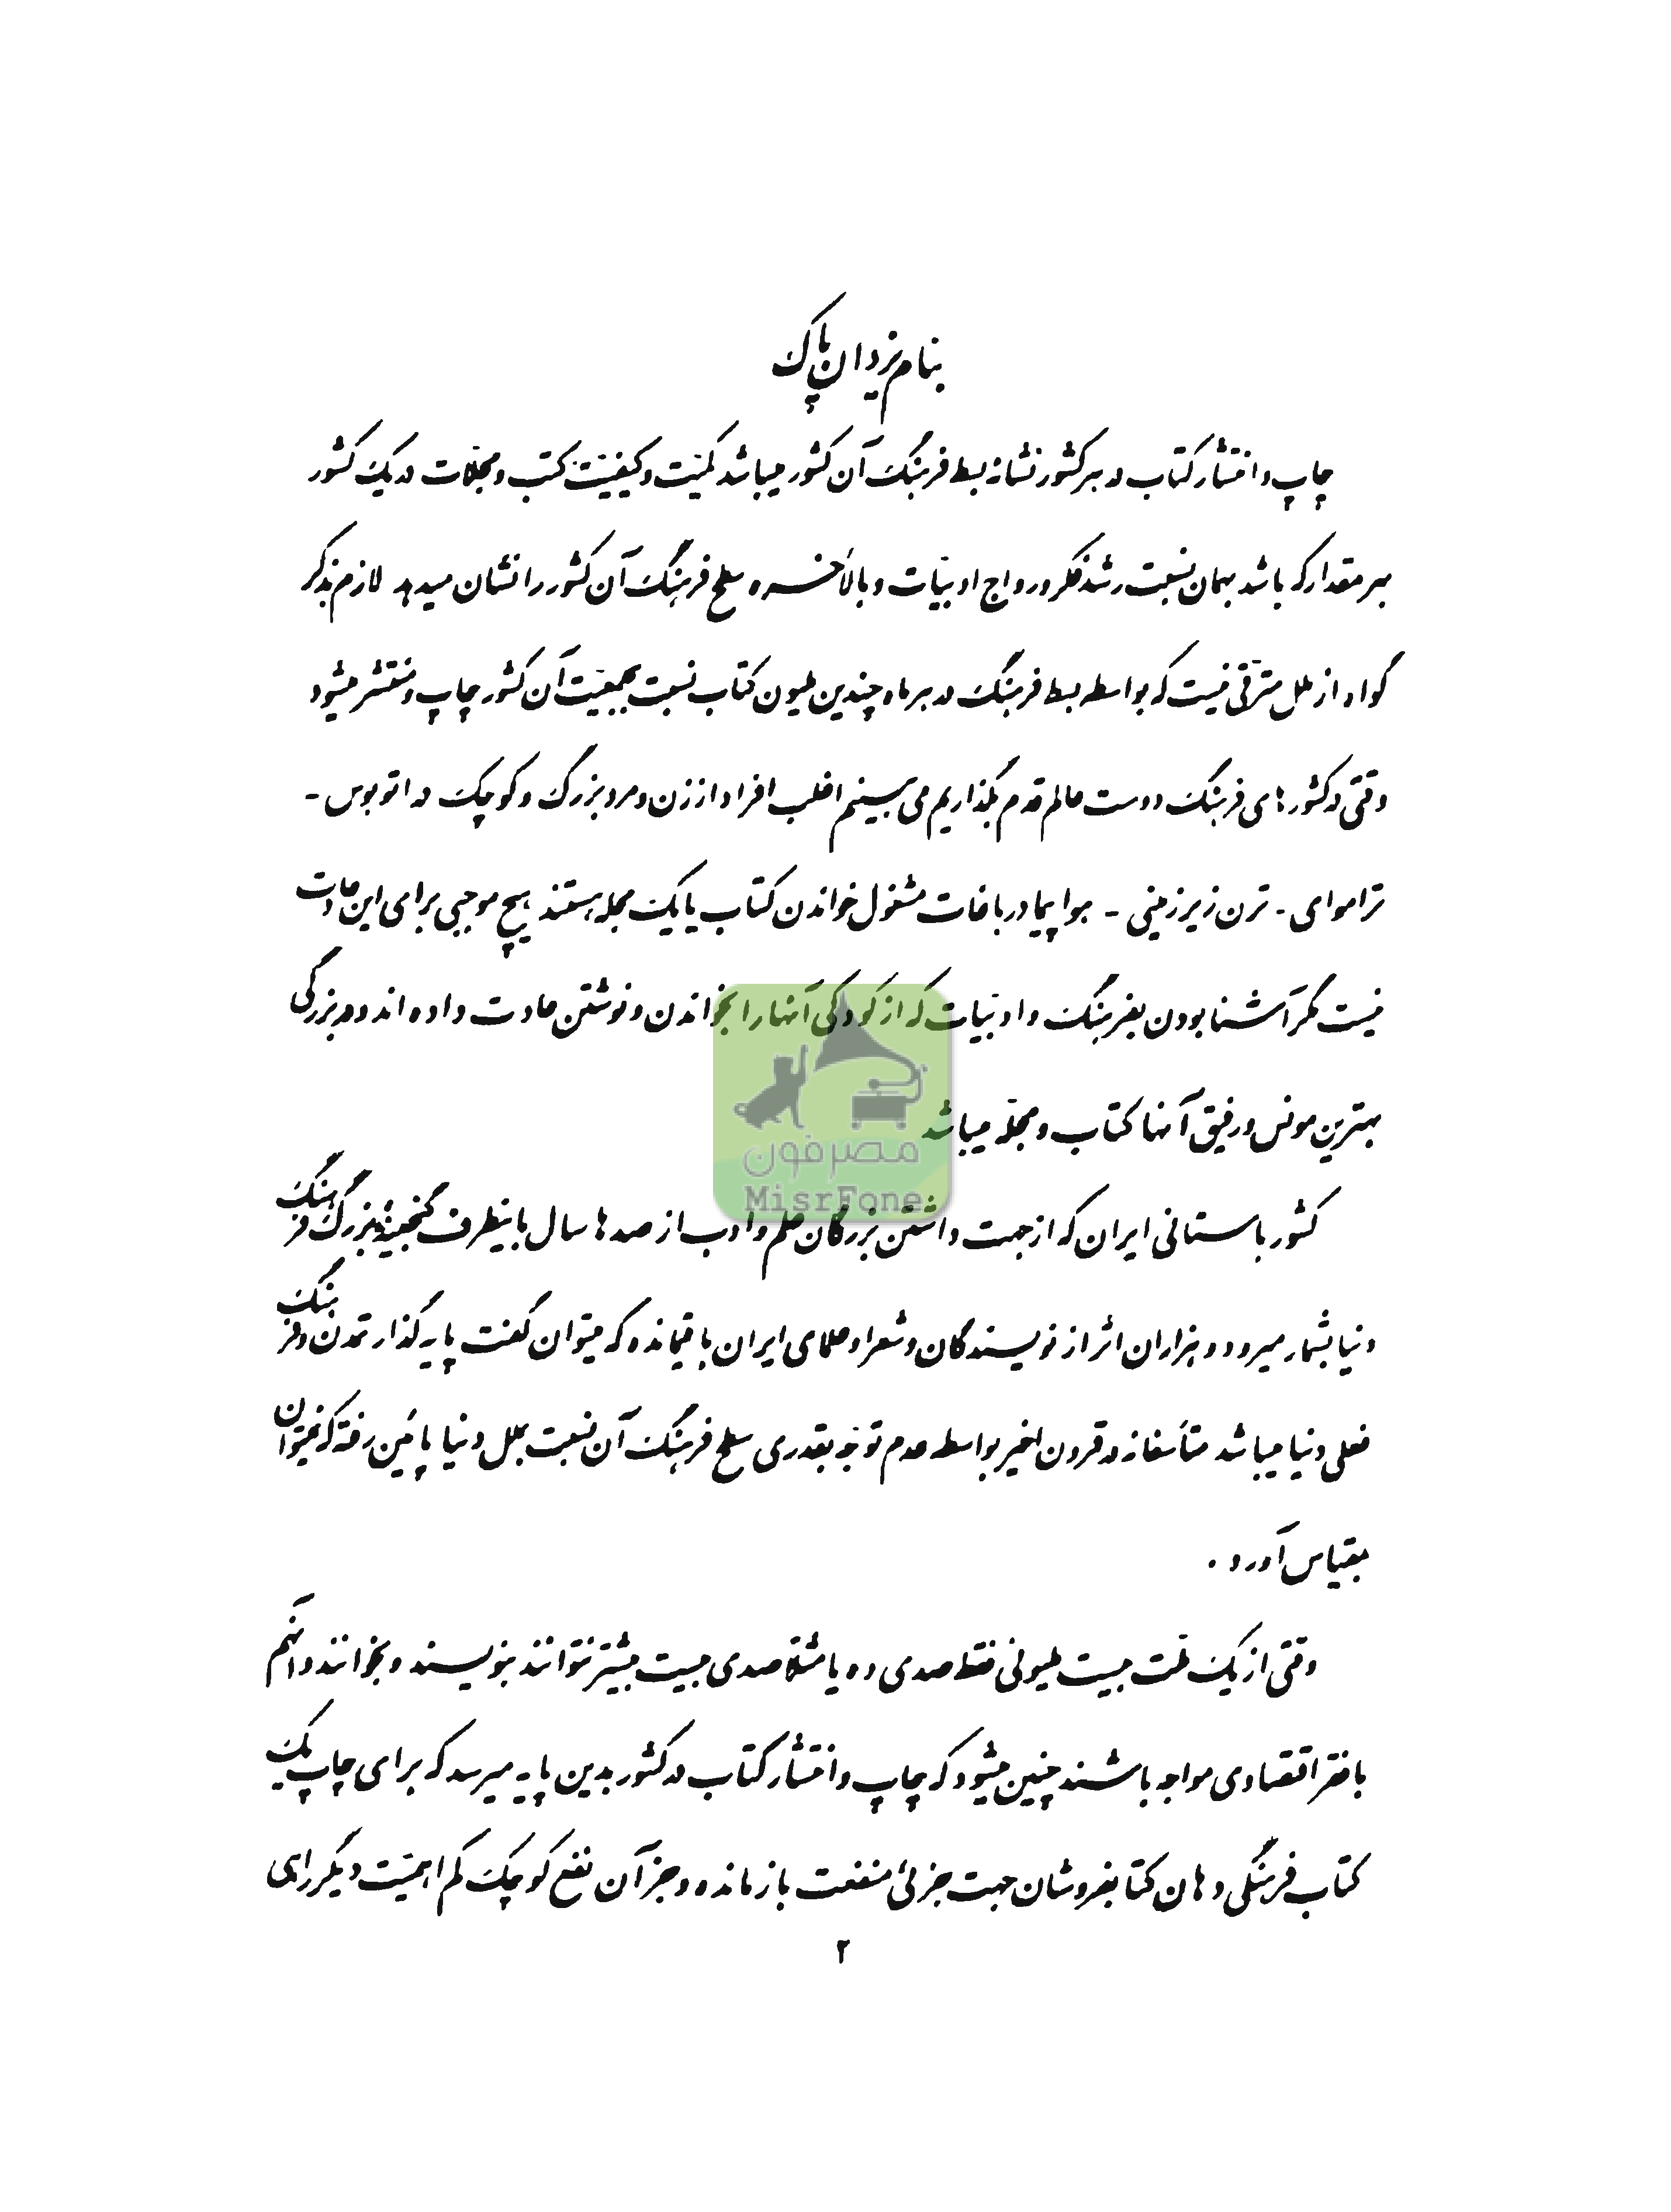 بنام یزدان پاک
چاپ و انتشار کتاب در هر کشور نشانهٔ بسط فرهنگ آن کشور میباشد کمیّت و کیفیّت کتب و مجلّات در یک کشور
بهر مقدار که باشد بهمان نسبت رشد فکر و رواج ادبیّات و بالأخره سطح فرهنگ آن کشور را نشان میدهد لازم بذکر
گواه از ملل مترقّی نیست که بواسطه بسط فرهنگ در هر ماه چندین ملیون کتاب نسبت بجمعیّت آن کشور چاپ و منتشر میشود
وقتی در کشورهای فرهنگ دوست عالم قدم بگذاریم می بینیم اغلب افراد از زن و مرد بزرگ و کوچک در اتوبوس -
تراموای - ترن زیرزمینی - هواپیما در باغات مشغول خواندن کتاب یا یک مجله هستند هیچ موجبی برای این عادت
نیست مگر آشنا بودن بفرهنگ و ادبیّات که از کودکی آنها را بخواندن و نوشتن عادت داده اند و در بزرگی
بهترین مونس و رفیق آنها کتاب و مجلّه میباشد
مصرفون
MisrFone
کشور باستانی ایران که از جهت داشتن بزرگان علم و ادب از صدها سال باینطرف گنجینهٔ بزرگ فرهنگ
دنیا بشمار میرود و هزاران اثر از نویسندگان و شعرا و علمای ایران باقیمانده که میتوان گفت پایه گذار تمدن و فرهنگ
فعلی دنیا میباشد متأسفانه در قرون اخیر بواسطه عدم توجّه بقدری سطح فرهنگ آن نسبت بملل دنیا پائین رفته که نمیتوان
بقیاس آورد .
وقتی از یک ملّت بیست ملیونی فقط صدی ده یا مثلاً صدی بیست بیشتر نتوانند بنویسند و بخوانند و آنهم
با فقر اقتصادی مواجه باشند چنین میشود که چاپ و انتشار کتاب در کشور بدین پایه میرسد که برای چاپ یک
کتاب فرهنگی دهان کتابفروشان جهت جزئی منفعت بازمانده و جز آن نفع کوچک کم اهمیّت دیگر رای
۲